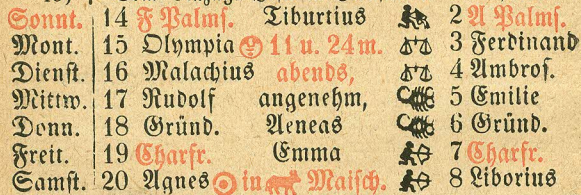 Sonnt. 14 F Palms. Tiburtius 2 A Palms.
Mont. 15 Olympia 11 u. 24 m. 3 Ferdinand
Dienst. 16 Malachius abends, 4 Ambros.
Mittw. 17 Rudolf angenehm, 5 Emilie
Donn. 18 Gründ. Aeneas 6 Gründ.
Freit. 19 Charfr. Emma 7 Charfr.
Samst. 20 Agnes in Maisch. 8 Liborius